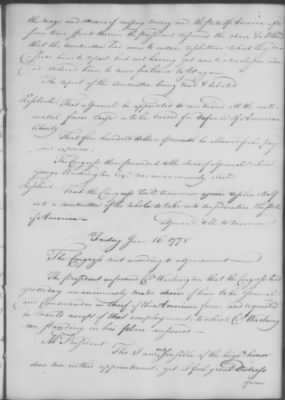 the ways and means of raising money and the State of America after
some time spent therein the president resumed the chair &
that the committee had come to certain resolutions which they de-
sired him to report but not having yet come to a conclusion
ordered him to move for leave to sit again
The report of the committee being read & debated
Resolved That a General be appointed to command all the conti-
nental forces raised or to be raised for the defence of American
liberty
That five hundred dollars per month be allowed for his pay
and expences
The Congress then proceeded to the choice of a general when
George Washington Esqr was unanimously elected
Resolved That the Congress will to morrow again resolve itself
into a committee of the whole to take into consideration the state
of America
adjourned till to morrow
Friday June 16. 1775
The Congress met according to adjournment
The President informed Col Washington that the Congress had
yesterday unanimously made choice of him to be General
and Commander in chief of the American forces and requested
he would accept of that employment, to which Col Washing-
ton standing in his place answered
Mr President Tho I am sensible of the high honor
done me in this appointment yet I feel great distress
from